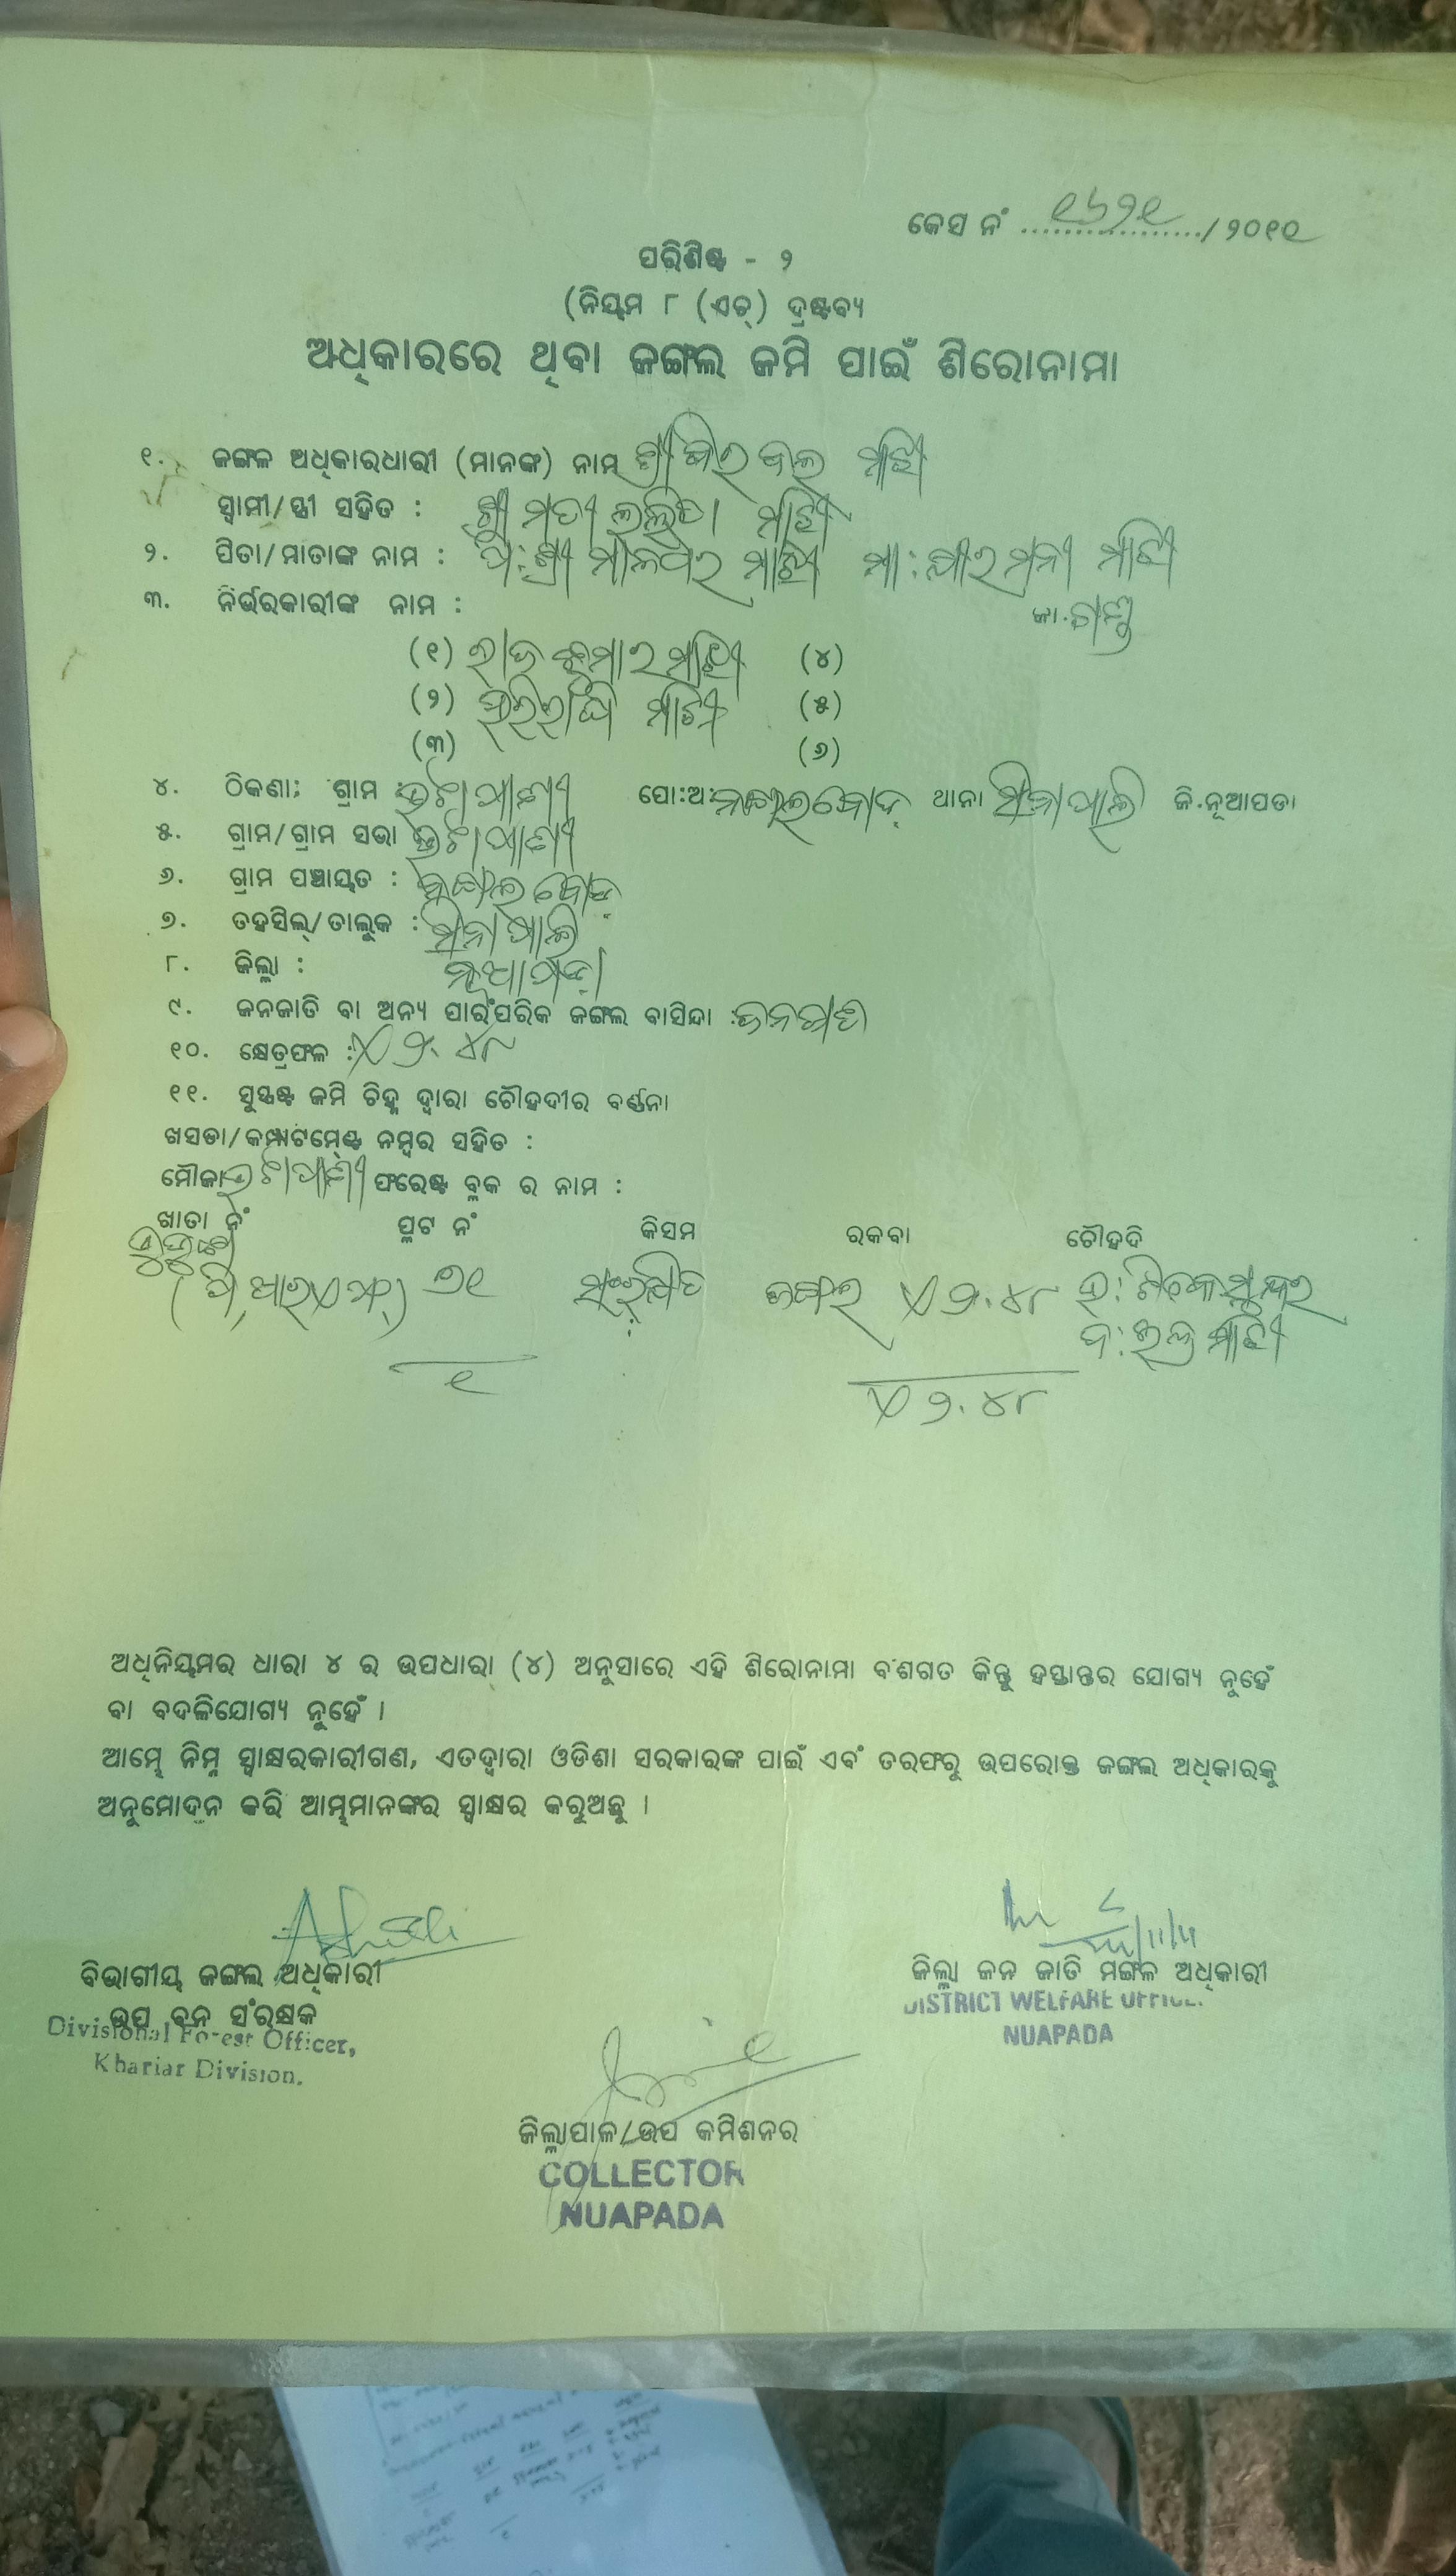 କେସ ନଂ ୧୬୨୧/୨୦୧୧
ପରିଶିଷ୍ଟ - ୨
(ନିୟମ ୮ (ଏଚ୍) ଦ୍ରଷ୍ଟବ୍ୟ
ଅଧିକାରରେ ଥିବା ଜଙ୍ଗଲ ଜମି ପାଇଁ ଶିରୋନାମା
୧. ଜଙ୍ଗଳ ଅଧିକାରଧାରୀ (ମାନଙ୍କ) ନାମ ଶ୍ରୀ ମାଝି
ସ୍ୱାମୀ/ସ୍ତ୍ରୀ ସହିତ : ଶ୍ରୀମତୀ ଲଳିତା ମାଝି
୨. ପିତା/ମାତାଙ୍କ ନାମ : ପି:ଶ୍ରୀ ମାଝି ମା: ମାଝି
୩. ନିର୍ଭରକାରୀଙ୍କ ନାମ : ଜା. ଗଣ୍ଡ
(୧) ରାଜ କୁମାର ମାଝି (୪)
(୨) ମାଝି (୫)
(୩) (୬)
୪. ଠିକଣା: ଗ୍ରାମ ଭଟାପାଣୀ ପୋ:ଅ: ଥାନା ସିନାପାଲି ଜି.ନୂଆପଡା
୫. ଗ୍ରାମ/ଗ୍ରାମ ସଭା ଭଟାପାଣୀ
୬. ଗ୍ରାମ ପଞ୍ଚାୟତ :
୭. ତହସିଲ୍/ତାଲୁକ : ସିନାପାଲି
୮. ଜିଲ୍ଲା : ନୂଆପଡ଼ା
୯. ଜନଜାତି ବା ଅନ୍ୟ ପାରଂପରିକ ଜଙ୍ଗଲ ବାସିନ୍ଦା : ଜନଜାତି
୧୦. କ୍ଷେତ୍ରଫଳ : ଏ ୨.୪୮
୧୧. ସୁସ୍ପଷ୍ଟ ଜମି ଚିହ୍ନ ଦ୍ୱାରା ଚୌହଦୀର ବର୍ଣ୍ଣନା
ଖସଡା/କମ୍ପାଟମେଣ୍ଟ ନମ୍ବର ସହିତ :
ମୌଜା ଭଟାପାଣୀ ଫରେଷ୍ଟ ବ୍ଲକ ର ନାମ :
ଖାତା ନଂ ପ୍ଲଟ ନଂ କିସମ ରକବା ଚୌହଦି
(ପି,ଆର୍ ଏଫ୍) ୭୧ ସଂରକ୍ଷିତ ଜଙ୍ଗଲ ଏ ୨.୪୮ ଉ:
ଦ: ମାଝି
୧ ଏ ୨.୪୮
ଅଧିନିୟମର ଧାରା ୪ ର ଉପଧାରା (୪) ଅନୁସାରେ ଏହି ଶିରୋନାମା ବଂଶଗତ କିନ୍ତୁ ହସ୍ତାନ୍ତର ଯୋଗ୍ୟ ନୁହେଁ
ବା ବଦଳିଯୋଗ୍ୟ ନୁହେଁ ।
ଆମ୍ଭେ ନିମ୍ନ ସ୍ୱାକ୍ଷରକାରୀଗଣ, ଏତଦ୍ୱାରା ଓଡିଶା ସରକାରଙ୍କ ପାଇଁ ଏବଂ ତରଫରୁ ଉପରୋକ୍ତ ଜଙ୍ଗଲ ଅଧିକାରକୁ
ଅନୁମୋଦନ କରି ଆମ୍ଭମାନଙ୍କର ସ୍ୱାକ୍ଷର କରୁଅଛୁ ।
ବିଭାଗୀୟ ଜଙ୍ଗଲ ଅଧିକାରୀ
ଉପ ବନ ସଂରକ୍ଷକ
Divisional Forest Officer,
Khariar Division.
ଜିଲ୍ଲା ଜନ ଜାତି ମଙ୍ଗଳ ଅଧିକାରୀ
DISTRICT WELFARE OFFICE.
NUAPADA
ଜିଲ୍ଲାପାଳ/ଉପ କମିଶନର
COLLECTOR
NUAPADA